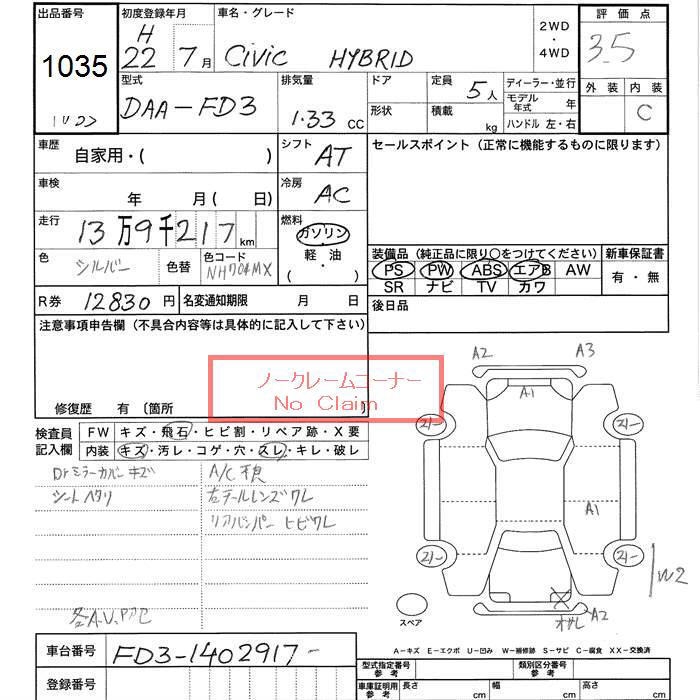 出品番号
1035
初度登録年月
H
22 7月
車名・グレード
Civic HYBRID
2WD
・
4WD
評価点
3.5
外装 内装
C
型式
DAA-FD3
排気量
1.33 CC
ドア
形状
定員 5人
積載 kg
ディーラー・並行
モデル年式 年
ハンドル 左・右
車歴 自家用・( )
シフト AT
セールスポイント(正常に機能するものに限ります)
車検 年 月(日)
冷房 AC
走行 13万9千217km
燃料 ガソリン
・
軽油
( )
色 シルバー 色替 色コード NH704MX
装備品(純正品に限り○をつけてください) 新車保証書
PS PW ABS エアB AW
SR ナビ TV カワ
有・無
R券 12830円 名変通知期限 月 日
後日品
注意事項申告欄(不具合内容等は具体的に記入して下さい)
ノークレームコーナー
No Claim
修復歴 有〔箇所
検査員記入欄
FW キズ・飛石・ヒビ割・リペア跡・X要
内装 キズ・汚レ・コゲ・穴・スレ・キレ・破レ
Drミラーカバー キズ
シート ヘタリ
A/C 不良
左テールレンズ ワレ
リアバンパー ヒビワレ
A2 A3
A1
A1
W2
A2
スペア
A-キズ E-エクボ U-凹み W-補修跡 S-サビ C-腐食 XX-交換済
車台番号 FD3-1402917-
登録番号
型式指定番号 参考
類別区分番号 参考
車庫証明用 参考 長さ cm 幅 cm 高さ cm